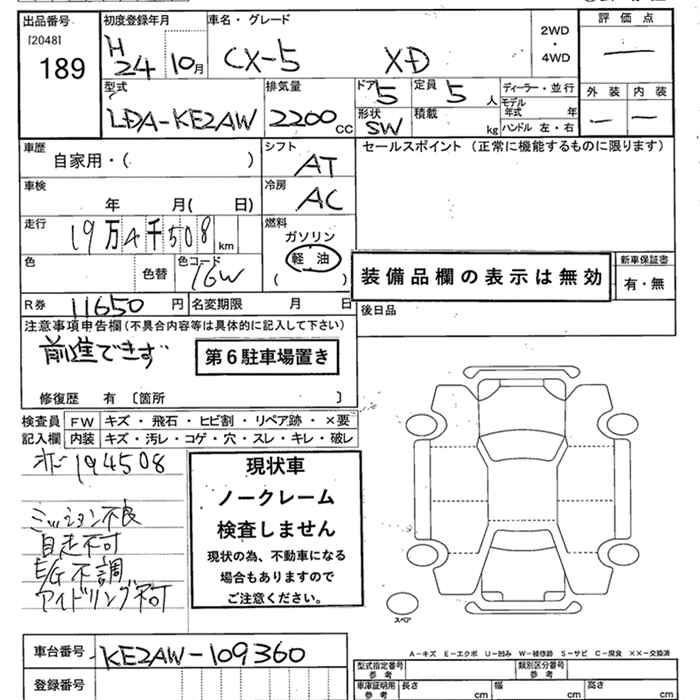 出品番号 初度登録年月 車名・グレード 評価点
[2048] 189 H 24 10月 CX-5 XD 2WD・4WD —
外装 内装
— —
型式 排気量 ドア 5 定員 5人 ディーラー・並行
LDA-KE2AW 2200cc 形状 SW 積載 kg モデル年式 年
ハンドル 左・右
車歴 シフト セールスポイント(正常に機能するものに限ります)
自家用・( ) AT
車検 冷房
年 月( 日) AC
走行 燃料
19万4千508km ガソリン
軽油
( )
色 色替 色コード 16W
装備品欄の表示は無効
新車保証書
有・無
R券 11650円 名変期限 月 日 後日品
注意事項申告欄(不具合内容等は具体的に記入して下さい)
前進できず
第6駐車場置き
修復歴 有 〔箇所 〕
検査員 FW キズ・飛石・ヒビ割・リペア跡・×要
記入欄 内装 キズ・汚レ・コゲ・穴・スレ・キレ・破レ
194508
ミッション不良
自走不可
E/G不調
アイドリング不可
現状車
ノークレーム
検査しません
現状の為、不動車になる
場合もありますので
ご注意ください。
スペア
車台番号 KE2AW-109360
登録番号
A-キズ E-エクボ U-凹み W-補修跡 S-サビ C-腐食 XX-交換済
型式指定番号 参考 類別区分番号 参考
車庫証明用 参考 長さ cm 幅 cm 高さ cm